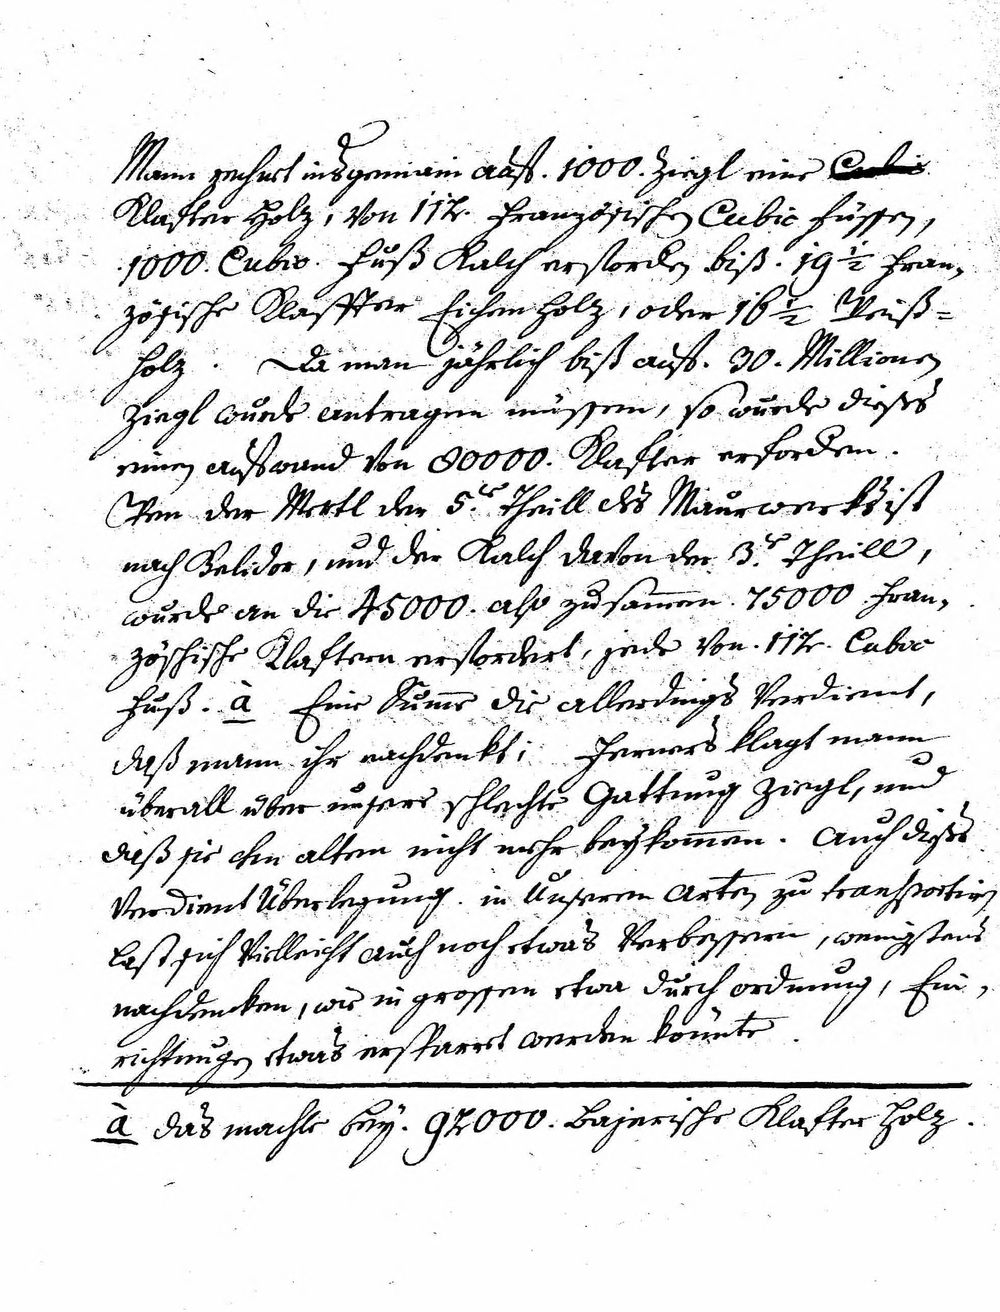 Mann rechnet insgemein auf. 1000. Ziegl eine Cubic
Klafter Holz, von 112. französischen Cubic füssen,
1000. Cubic. Fuß Kalch erfordern biß. 19 1/2 fran-
zösische Klaffter Eichen holz, oder 16 1/2 Weiß=
holz. Da man jährlich biß auf. 30. Millionen
Ziegl wurde antragen müssen, so wurde dieses
einen aufwand von 80000. Klafter erfordern.
Wen der Mertl der 5.te Theill des Maurwerks ist
nach Belidor, und der Kalch davon der 3.te Theill,
wurde an die 45000. also zusammen 75000 fran-
zösische Klaftern erfordert, jede von. 112. Cubic
Fuß. à Eine Summe die allerdings verdient,
daß mann ihr nachdenkt; ferners klagt mann
überall über unsere schlechte Gattung Ziegl, und
daß sie den alten nicht mehr beykommen. Auch dieses
verdient Überlegung. in Unseren Arten zu transportiren
last sich vielleicht auch noch etwas verbessern, wenigstens
nachdencken, wie in grossen etwa durch ordnung, Ein-
richtungen etwas ersparret werden könnte.
à das machte bey. 92000. bajerische Klafter Holz.